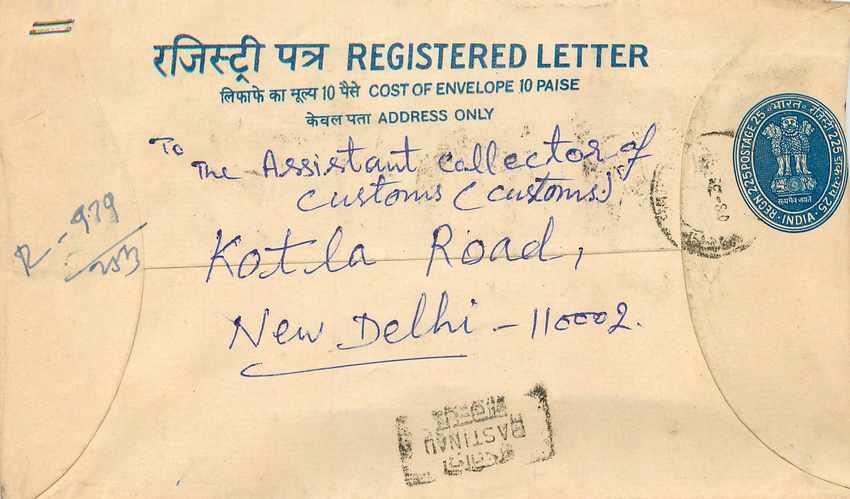 रजिस्ट्री पत्र REGISTERED LETTER
लिफाफे का मूल्य 10 पैसे COST OF ENVELOPE 10 PAISE
केवल पता ADDRESS ONLY
To
The Assistant Collector of
Customs (Customs)
Kotla Road,
New Delhi - 110002.
R - 979
भारत रजिस्ट्री 225 डाक-व्यय 25
INDIA REGN. 225 POSTAGE 25
सत्यमेव जयते
BASTINAU